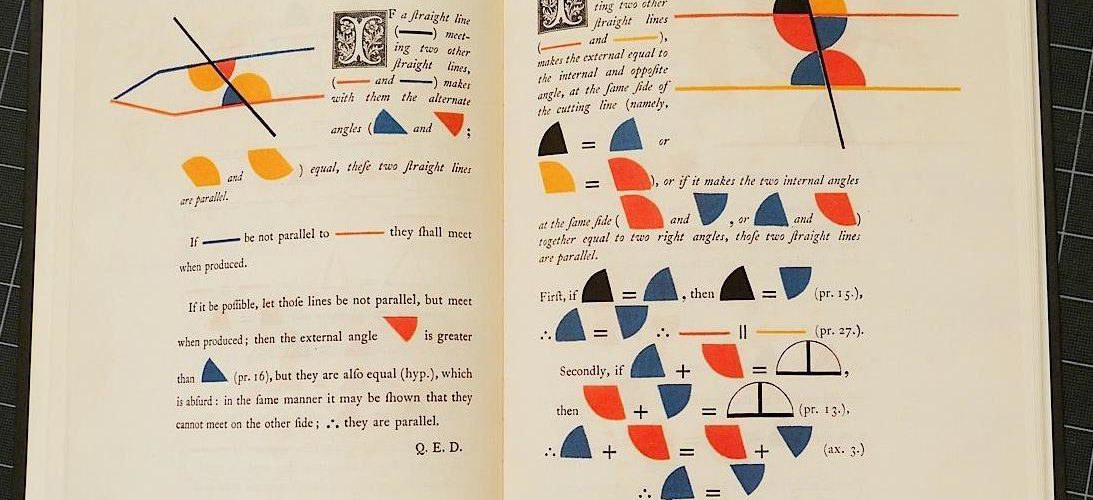 IF a ſtraight line
( ) meet-
ing two other
ſtraight lines,
( and ) makes
with them the alternate
angles ( and ;
and ) equal, theſe two ſtraight lines
are parallel.
If be not parallel to they ſhall meet
when produced.
If it be poſſible, let thoſe lines be not parallel, but meet
when produced; then the external angle is greater
than (pr. 16), but they are alſo equal (hyp.), which
is abſurd: in the ſame manner it may be ſhown that they
cannot meet on the other ſide; ∴ they are parallel.
Q. E. D.
I ting two other
ſtraight lines
( and ),
makes the external equal to
the internal and oppoſite
angle, at the ſame ſide of
the cutting line (namely,
= or
= ), or if it makes the two internal angles
at the ſame ſide ( and , or and )
together equal to two right angles, thoſe two ſtraight lines
are parallel.
Firſt, if = , then = (pr. 15.),
∴ = ∴ || (pr. 27.).
Secondly, if + = ,
then + = (pr. 13.),
∴ + = + (ax. 3.)
∴ =